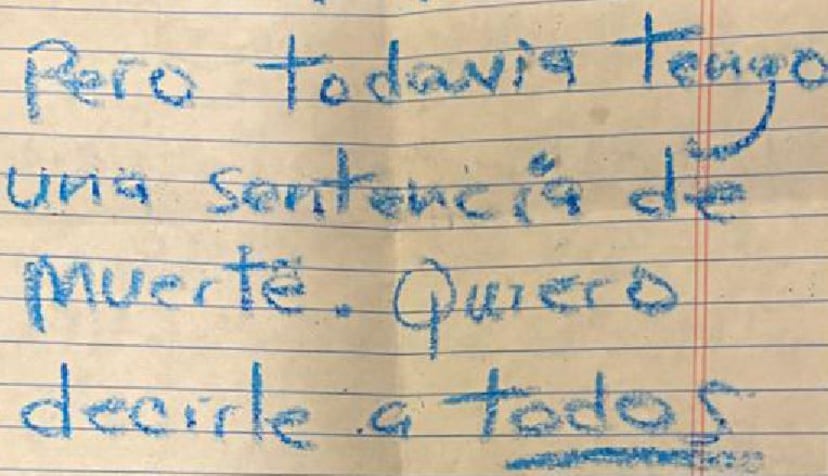 Pero todavia tengo
una sentencia de
muerte. Quiero
decirle a todos